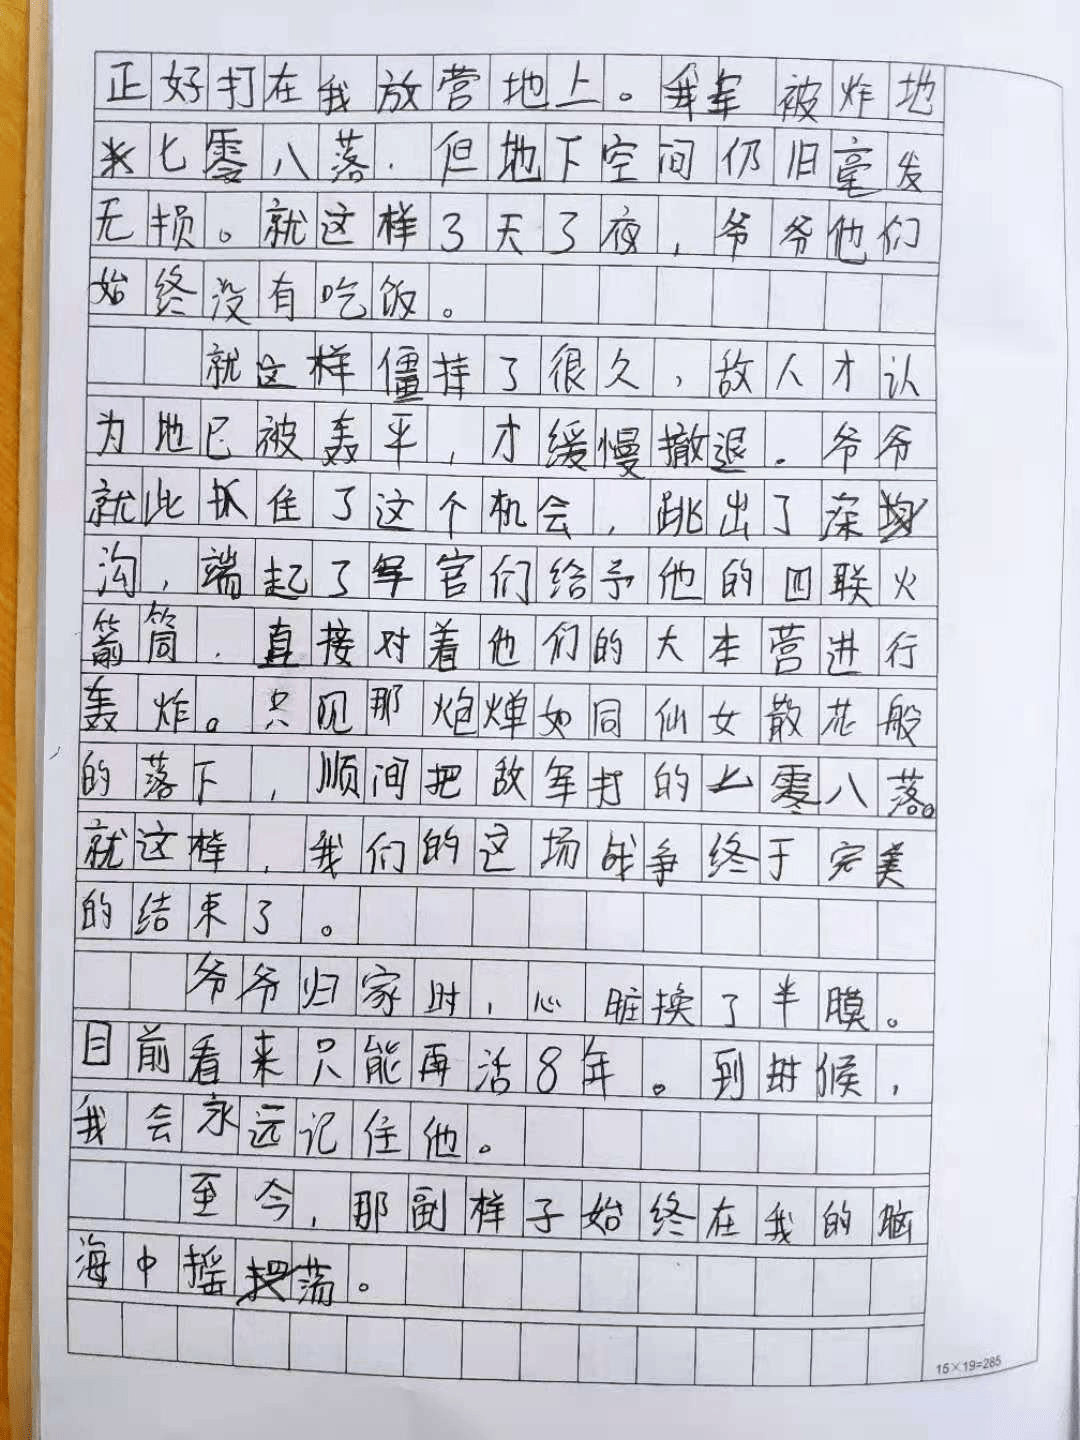 正好打在我放营地上。我军被炸地
七零八落.但地下空间仍旧毫发
无损。就这样3天了夜,爷爷他们
始终没有吃饭。
就这样僵持了很久,敌人才认
为地已被轰平,才缓慢撤退.爷爷
就此抓住了这个机会,跳出了深
沟,端起了军官们给予他的四联火
箭筒.直接对着他们的大本营进行
轰炸。只见那炮弹如同仙女散花般
的落下,顺间把敌军打的七零八落。
就这样,我们的这场战争终于完美
的结束了。
爷爷归家时,心脏换了半膜。
目前看来只能再活8年。到时候,
我会永远记住他。
至今,那副样子始终在我的脑
海中摇荡。
15×19=285